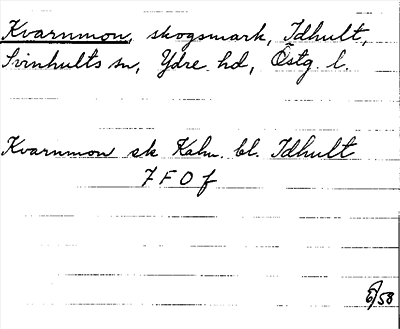 Kvarnmon, skogsmark, Idhult,
Svinhults sn, Ydre hd, Östg. l.
Kvarnmon sk Kalm. bl. Idhult
7 F O f
6/58